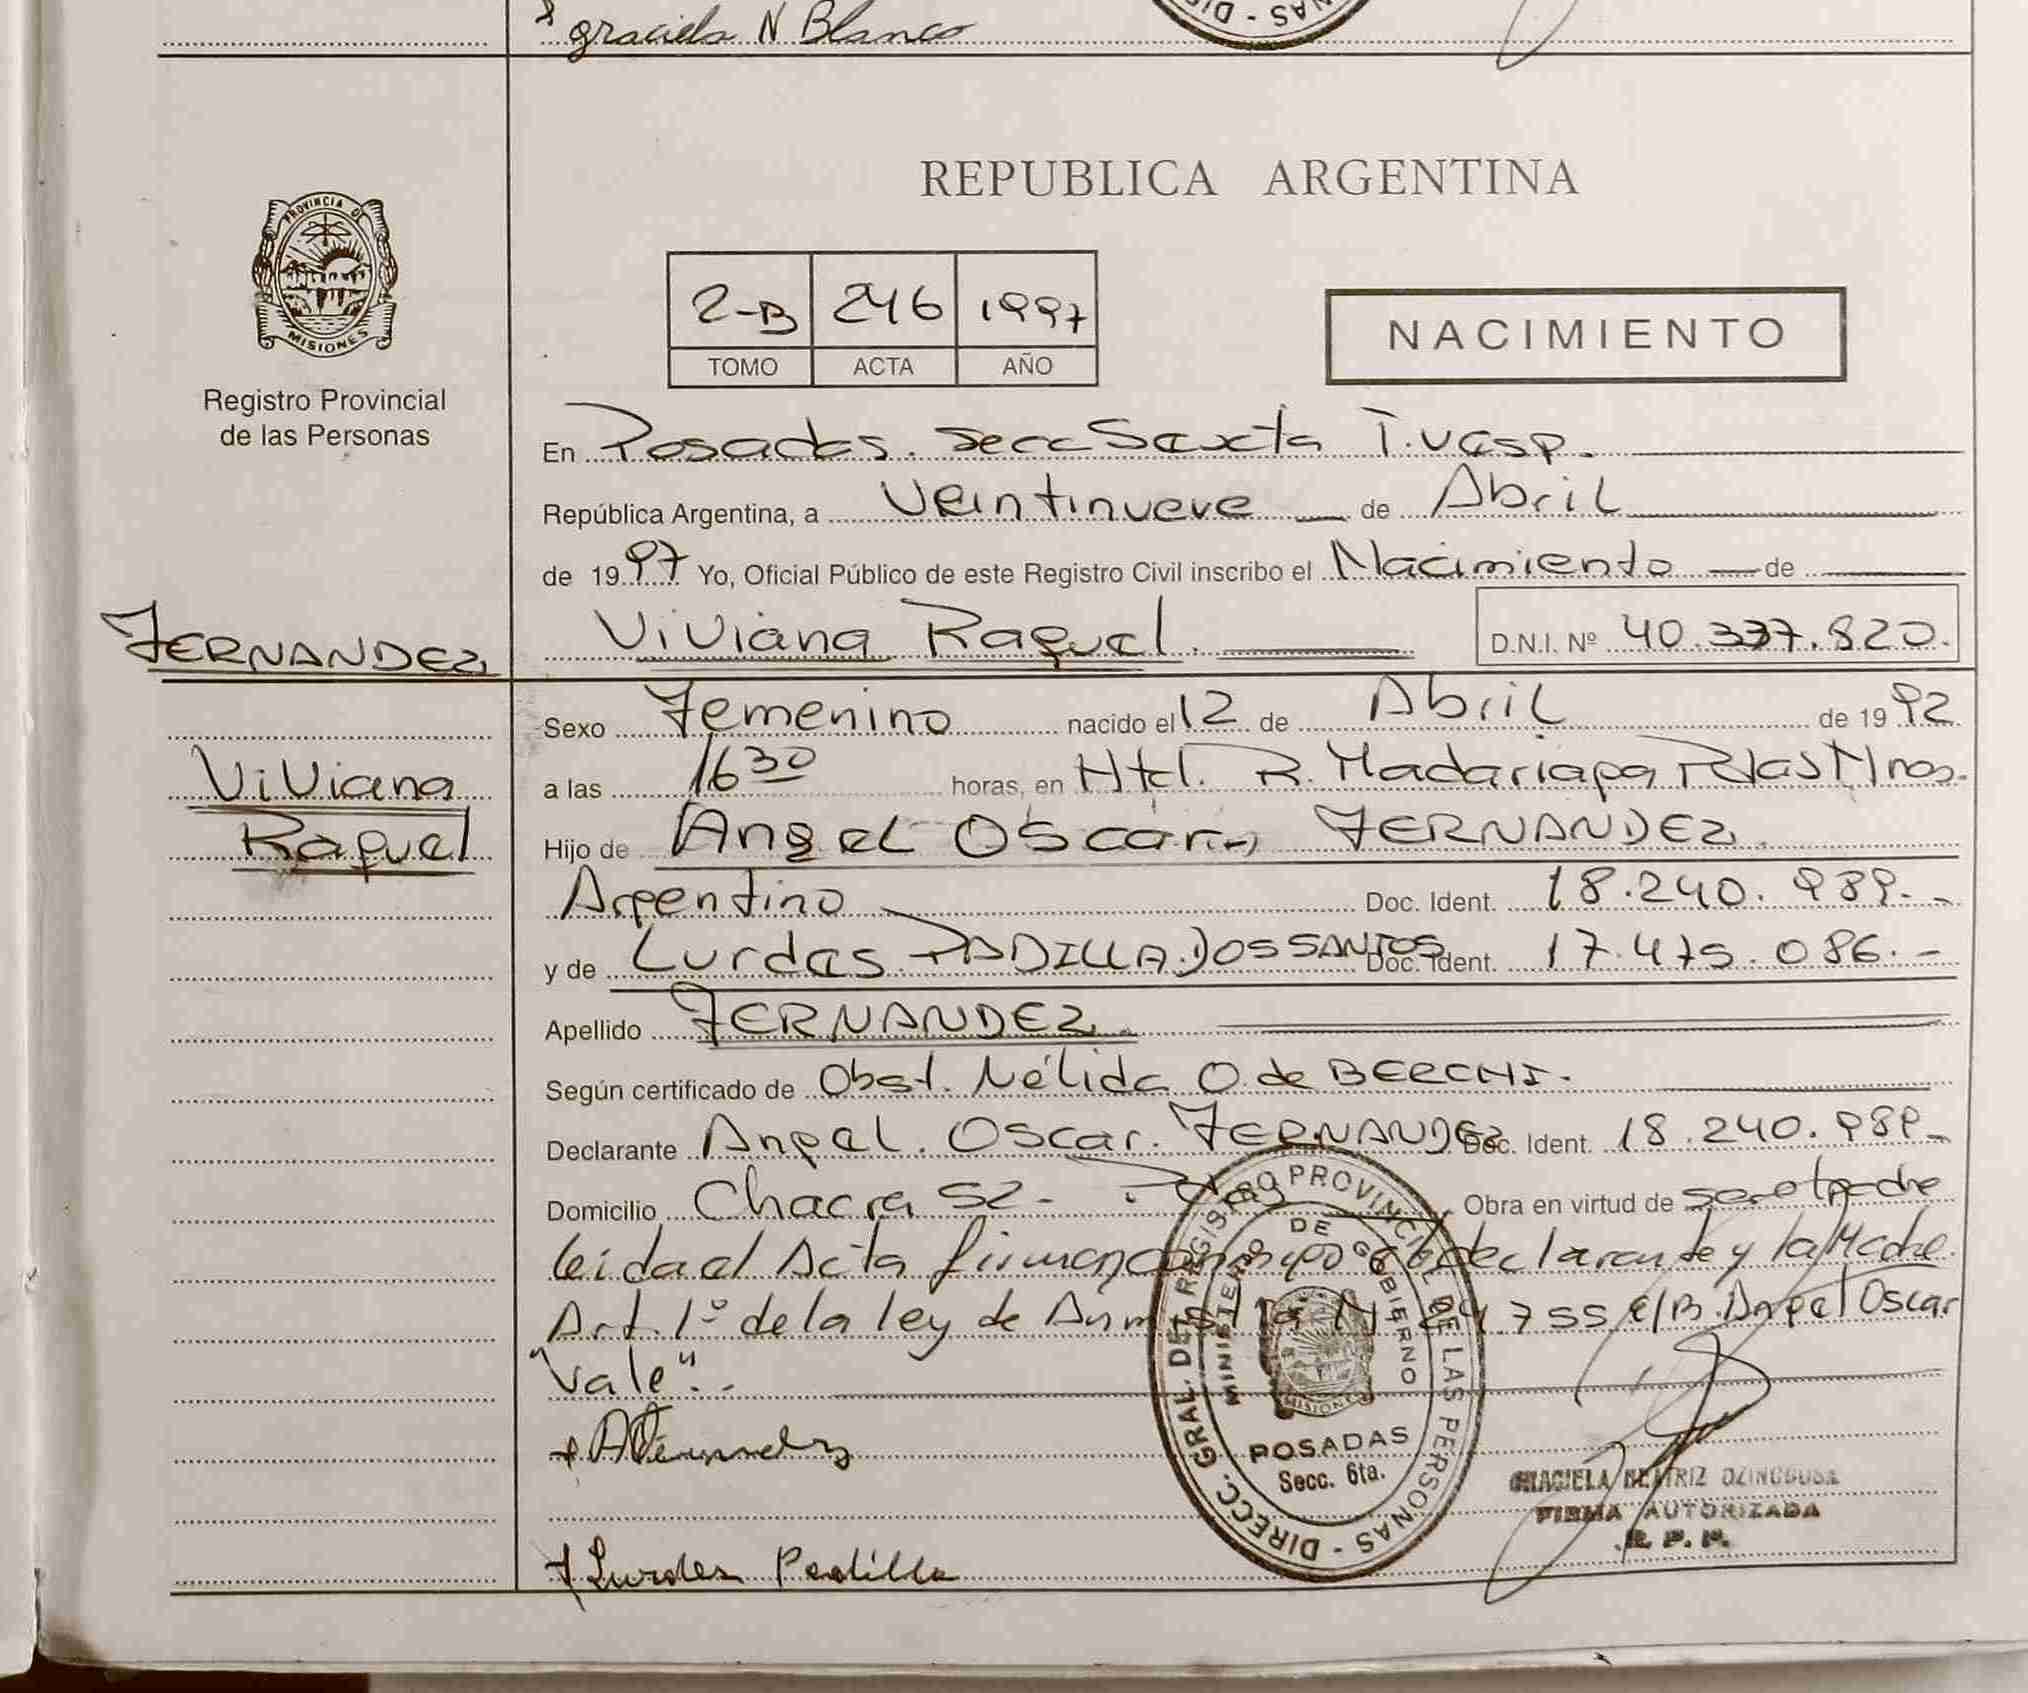 graciela N Blanco
PROVINCIA DE
MISIONES
Registro Provincial
de las Personas
REPUBLICA ARGENTINA
2-B 246 1997
TOMO ACTA AÑO
NACIMIENTO
En Posadas. Secc Sexta T.
República Argentina, a Veintinueve de Abril
de 1997 Yo, Oficial Público de este Registro Civil inscribo el Nacimiento de
FERNANDEZ
Viviana Raquel. D.N.I. Nº 40.337.820.
Viviana
Raquel
Sexo Femenino nacido el 12 de Abril de 1992
a las 16 30 horas, en Htal. R. Madariaga Pdas Mnes.
Hijo de Angel Oscar FERNANDEZ
Argentino Doc. Ident. 18.240.989.-
y de Lurdes PADILLA DOS SANTOS Doc. Ident. 17.475.086.-
Apellido FERNANDEZ
Según certificado de Obst. Nélida O. de
Declarante Angel. Oscar. FERNANDEZ Doc. Ident. 18.240.989-
Domicilio Chacra 52- Pdas Obra en virtud de ser el padre
leida el Acta firman conmigo el declarante y la Madre.
Art. 1º de la ley de Amnistia Nº 24.755 E/B. Angel Oscar
"Vale".-
Fernandez
Lurdes Padilla
DIRECC. GRAL. DEL REGISTRO PROVINCIAL DE LAS PERSONAS
MINISTERIO DE GOBIERNO
MISIONES
POSADAS
Secc. 6ta.
GRACIELA BEATRIZ
FIRMA AUTORIZADA
R. P. P.